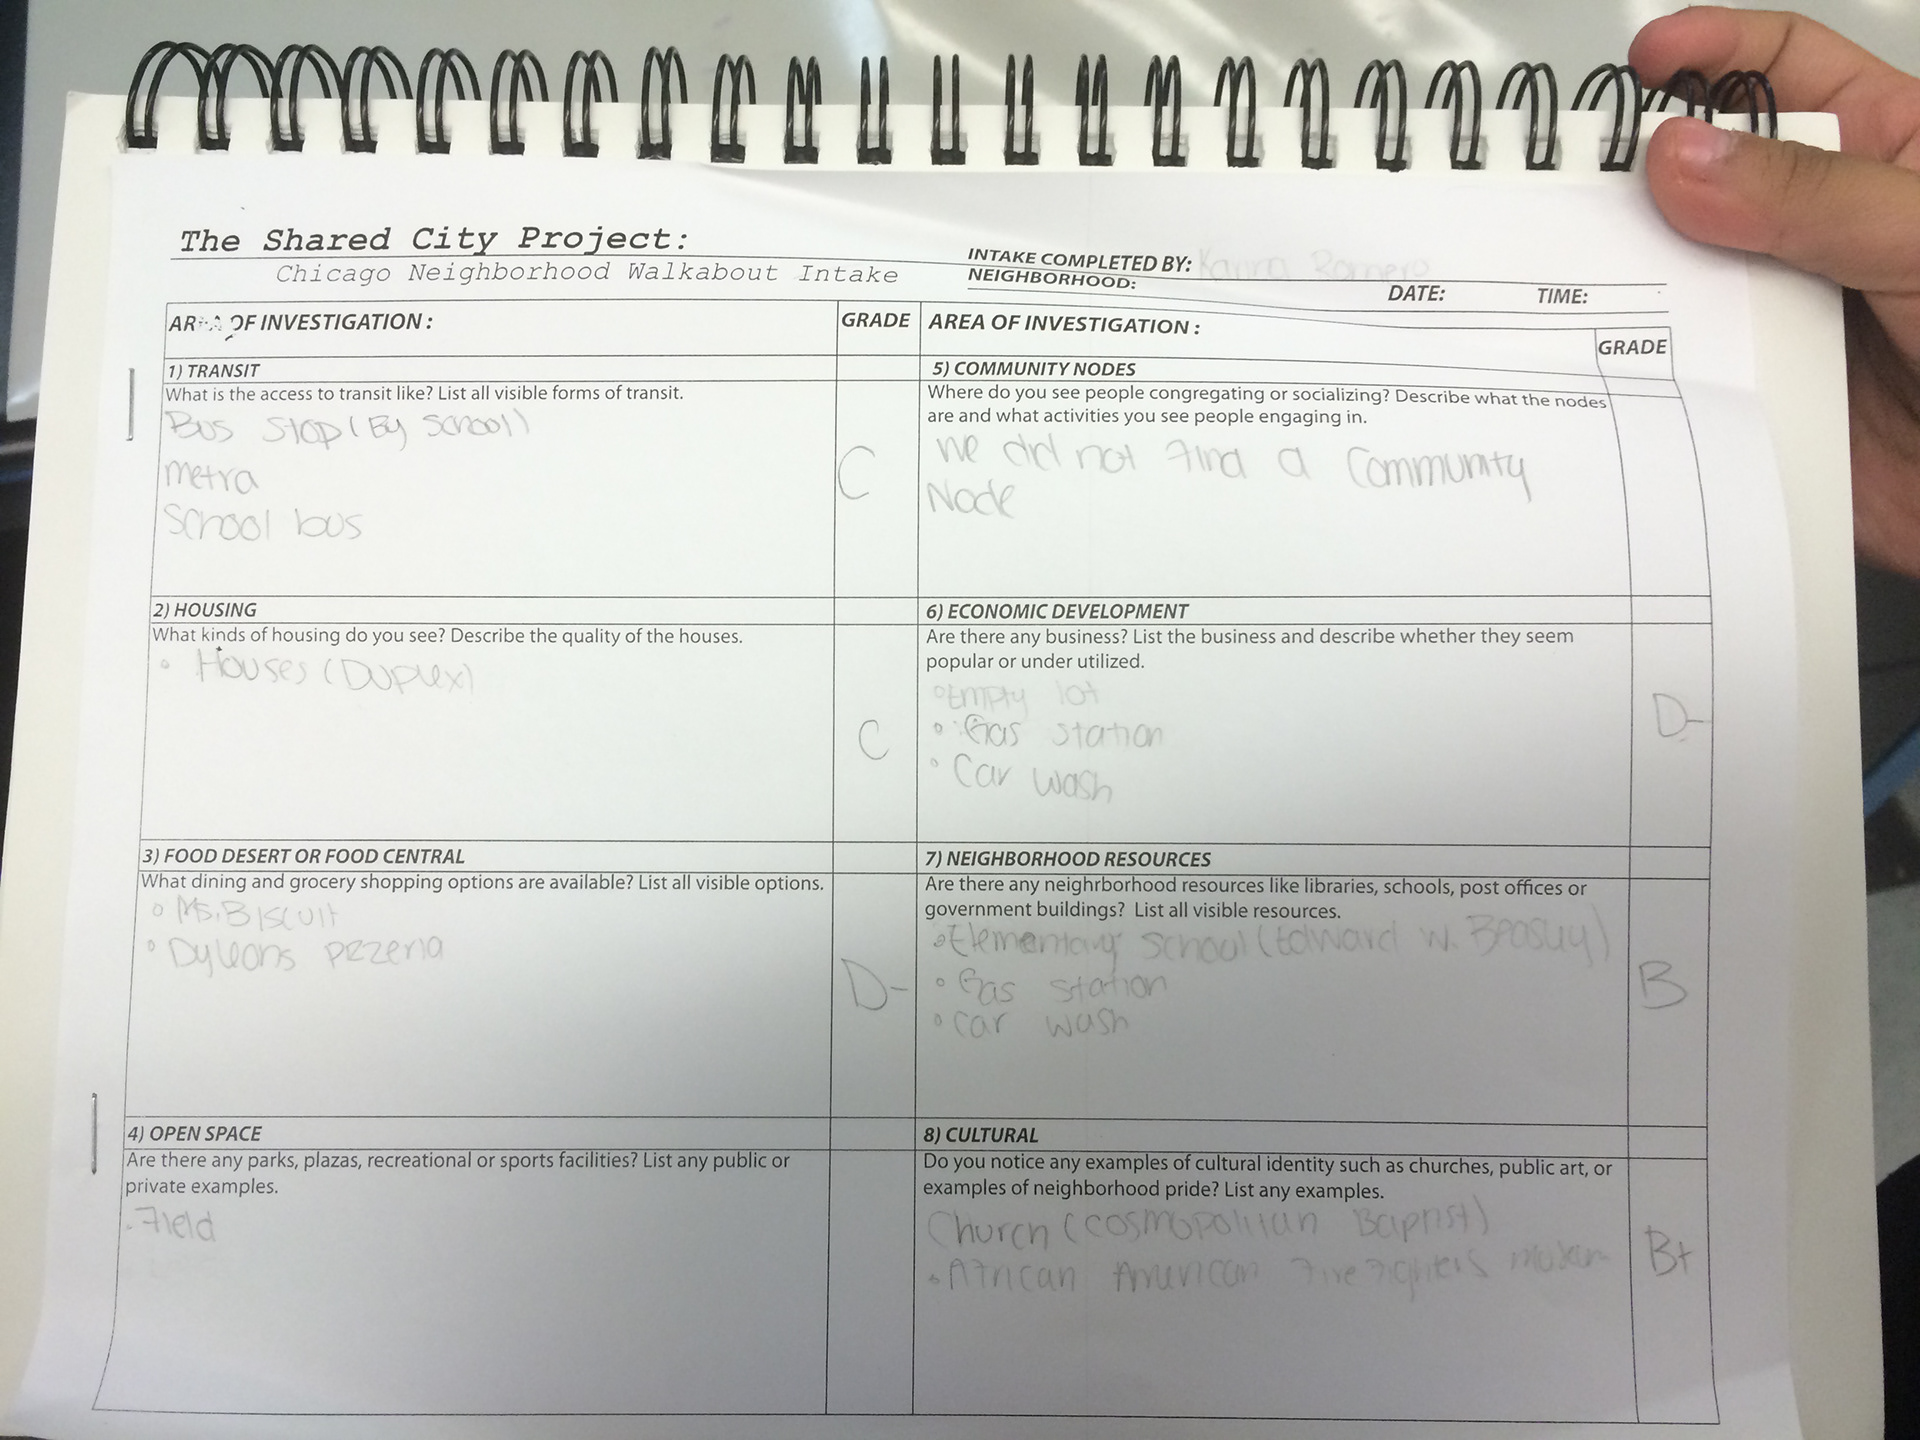 The Shared City Project:
Chicago Neighborhood Walkabout Intake
INTAKE COMPLETED BY: Karina Romero
NEIGHBORHOOD:
DATE: TIME:
AREA OF INVESTIGATION :
GRADE
1) TRANSIT
What is the access to transit like? List all visible forms of transit.
Bus Stop (By School)
Metra
School bus
C
2) HOUSING
What kinds of housing do you see? Describe the quality of the houses.
Houses (Duplex)
C
3) FOOD DESERT OR FOOD CENTRAL
What dining and grocery shopping options are available? List all visible options.
Ms. Biscuit
pizzeria
D-
4) OPEN SPACE
Are there any parks, plazas, recreational or sports facilities? List any public or
private examples.
Field
AREA OF INVESTIGATION :
GRADE
5) COMMUNITY NODES
Where do you see people congregating or socializing? Describe what the nodes
are and what activities you see people engaging in.
We did not find a Community
Node
6) ECONOMIC DEVELOPMENT
Are there any business? List the business and describe whether they seem
popular or under utilized.
Empty lot
Gas station
Car wash
D-
7) NEIGHBORHOOD RESOURCES
Are there any neighrborhood resources like libraries, schools, post offices or
government buildings? List all visible resources.
Elementary School (Edward W. Beasley)
Gas station
Car wash
B
8) CULTURAL
Do you notice any examples of cultural identity such as churches, public art, or
examples of neighborhood pride? List any examples.
Church (Cosmopolitan Baptist)
African American Firefighters museum
B+